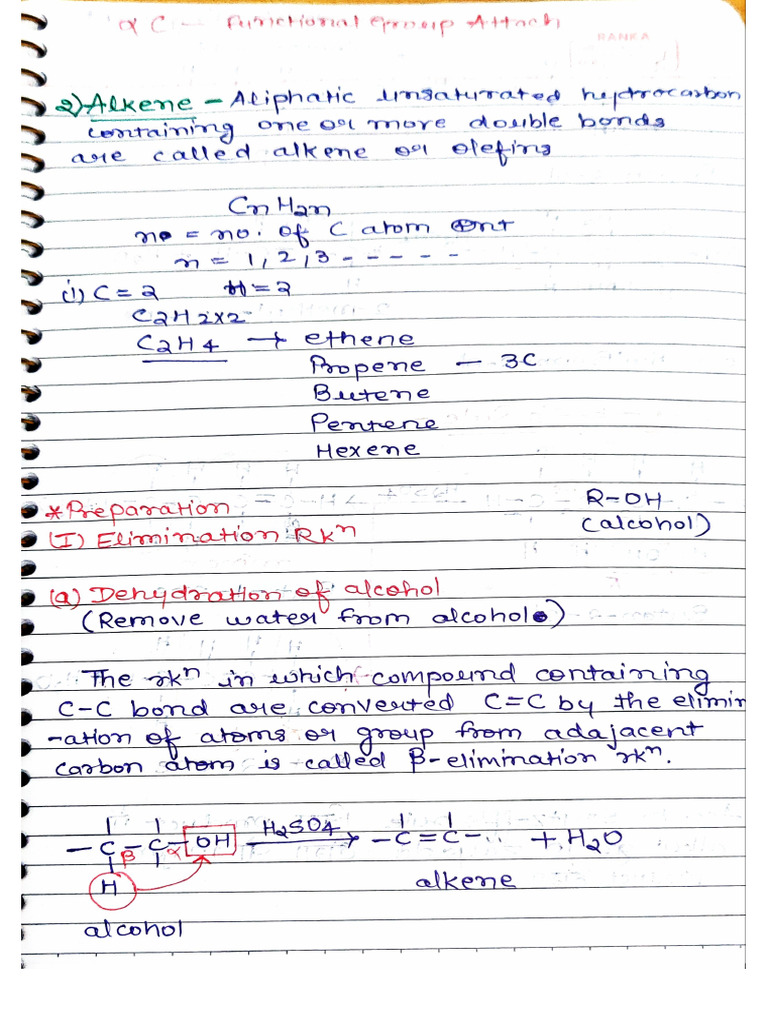 α C - Functional Group Attach
RANKA
2) Alkene - Aliphatic unsaturated hydrocarbon
containing one or more double bonds
are called alkene or olefins
CnH2n
n = no. of C atom
n = 1, 2, 3 - - - - -
(i) C = 2 H = 2
C2H2x2
C2H4 → ethene
Propene - 3C
Butene
Pentene
Hexene
*Preparation
R-OH
(I) Elimination Rkⁿ
(alcohol)
(a) Dehydration of alcohol
(Remove water from alcohol)
The rkⁿ in which compound containing
C-C bond are converted C=C by the elimin
-ation of atoms or group from adajacent
carbon atom is called β-elimination rkⁿ.
-C-C-OH H2SO4 → -C=C- + H2O
β α
H
alkene
alcohol